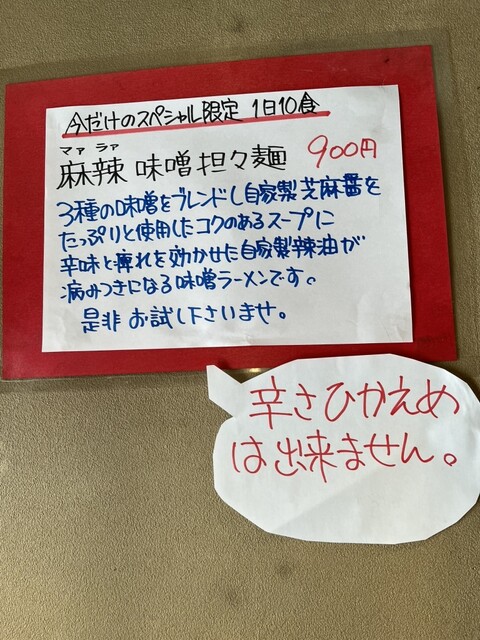 今だけのスペシャル限定 1日10食
マァ ラァ
麻辣 味噌担々麺 900円
3種の味噌をブレンドし自家製芝麻醤を
たっぷりと使用したコクのあるスープに
辛味と痺れを効かせた自家製辣油が
病みつきになる味噌ラーメンです。
是非 お試し下さいませ。
辛さひかえめ
は出来ません。